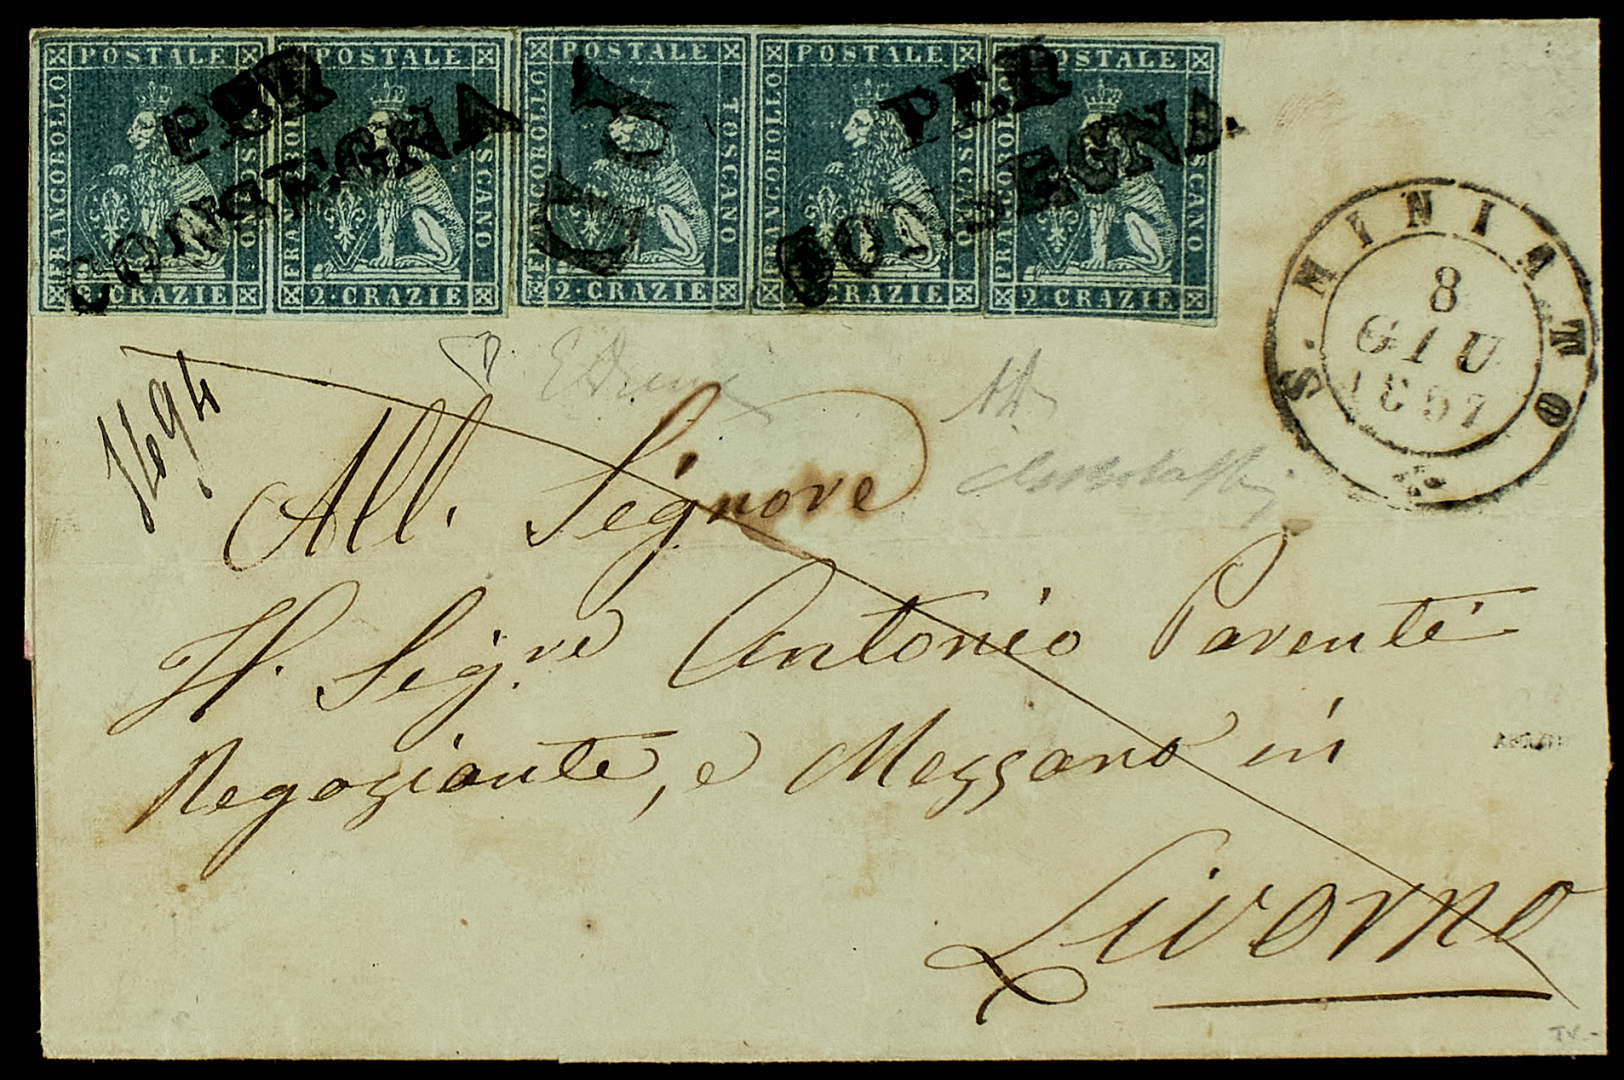 POSTALE POSTALE POSTALE POSTALE POSTALE
FRANCOBOLLO TOSCANO
2·CRAZIE 2·CRAZIE 2·CRAZIE 2·CRAZIE 2·CRAZIE
PER
CONSEGNA
P.D
PER
CONSEGNA
S. MINIATO
8
GIU
1857
1694
All. Signore
Il Sig.re Antonio Parenti
Negoziante, e Mezzano in
Livorno